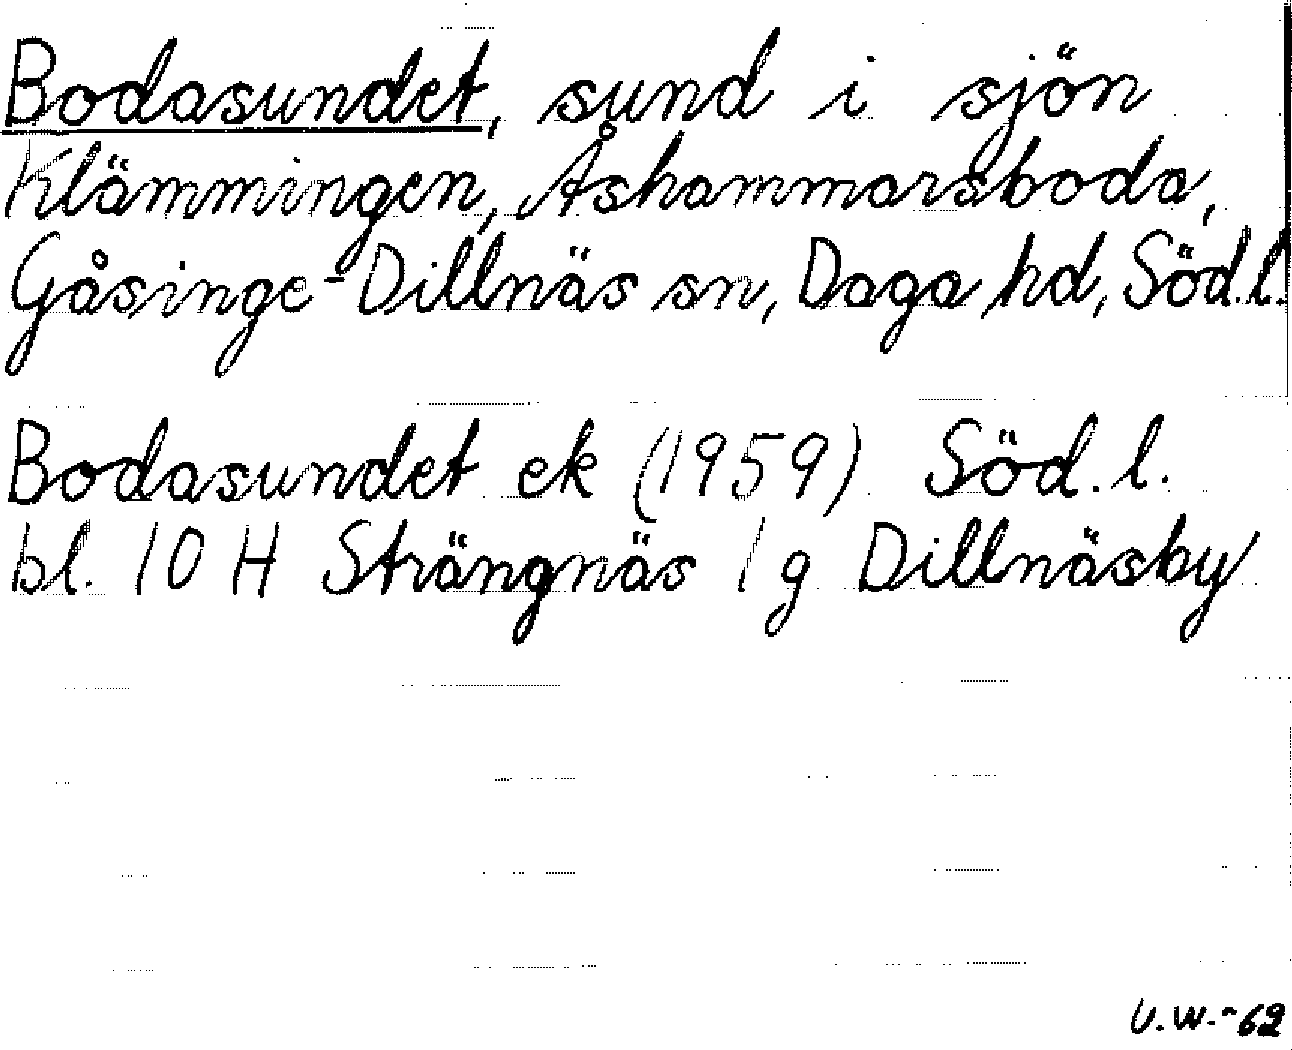 Bodasundet, sund i sjön
Klämmingen, Åshammarsboda,
Gåsinge-Dillnäs sn, Daga hd, Söd.l.
Bodasundet ek (1959) Söd.l.
bl. 10 H Strängnäs 1 g Dillnäsby
U.W.-62